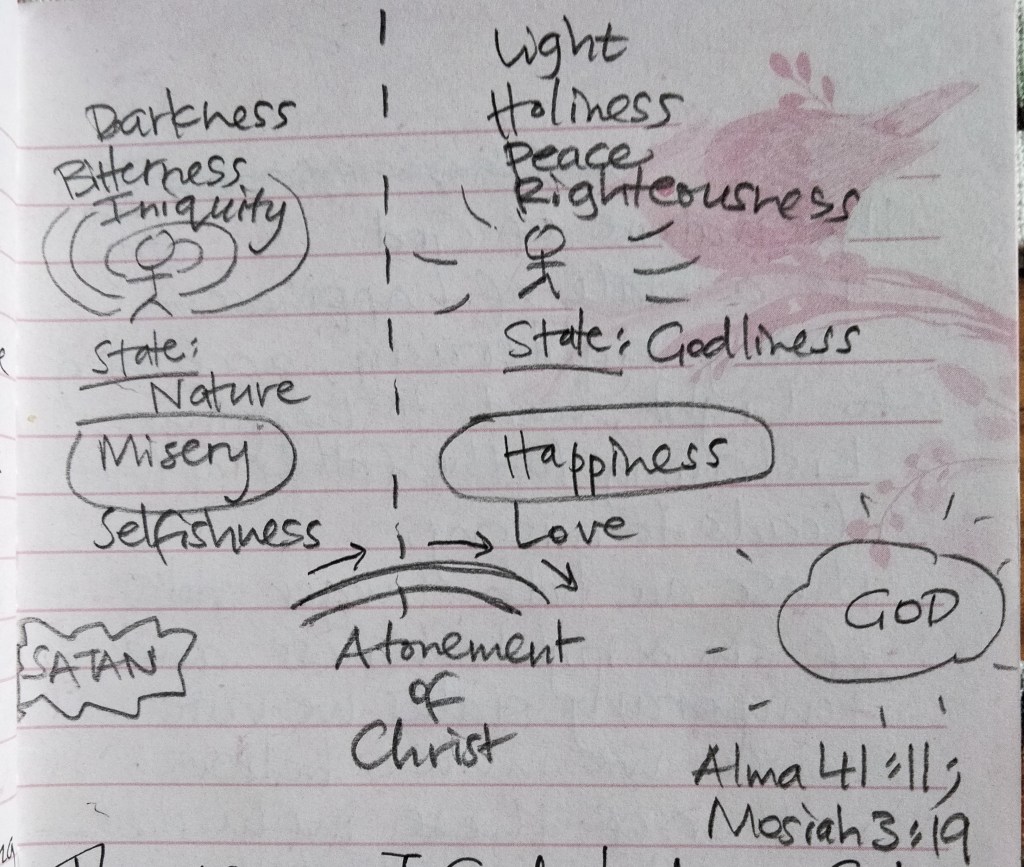 Light
Darkness
Holiness
Bitterness
Peace
Iniquity
Righteousness
State:
Nature
State: Godliness
Misery
Happiness
Selfishness
Love
SATAN
Atonement
of
Christ
GOD
Alma 41:11;
Mosiah 3:19